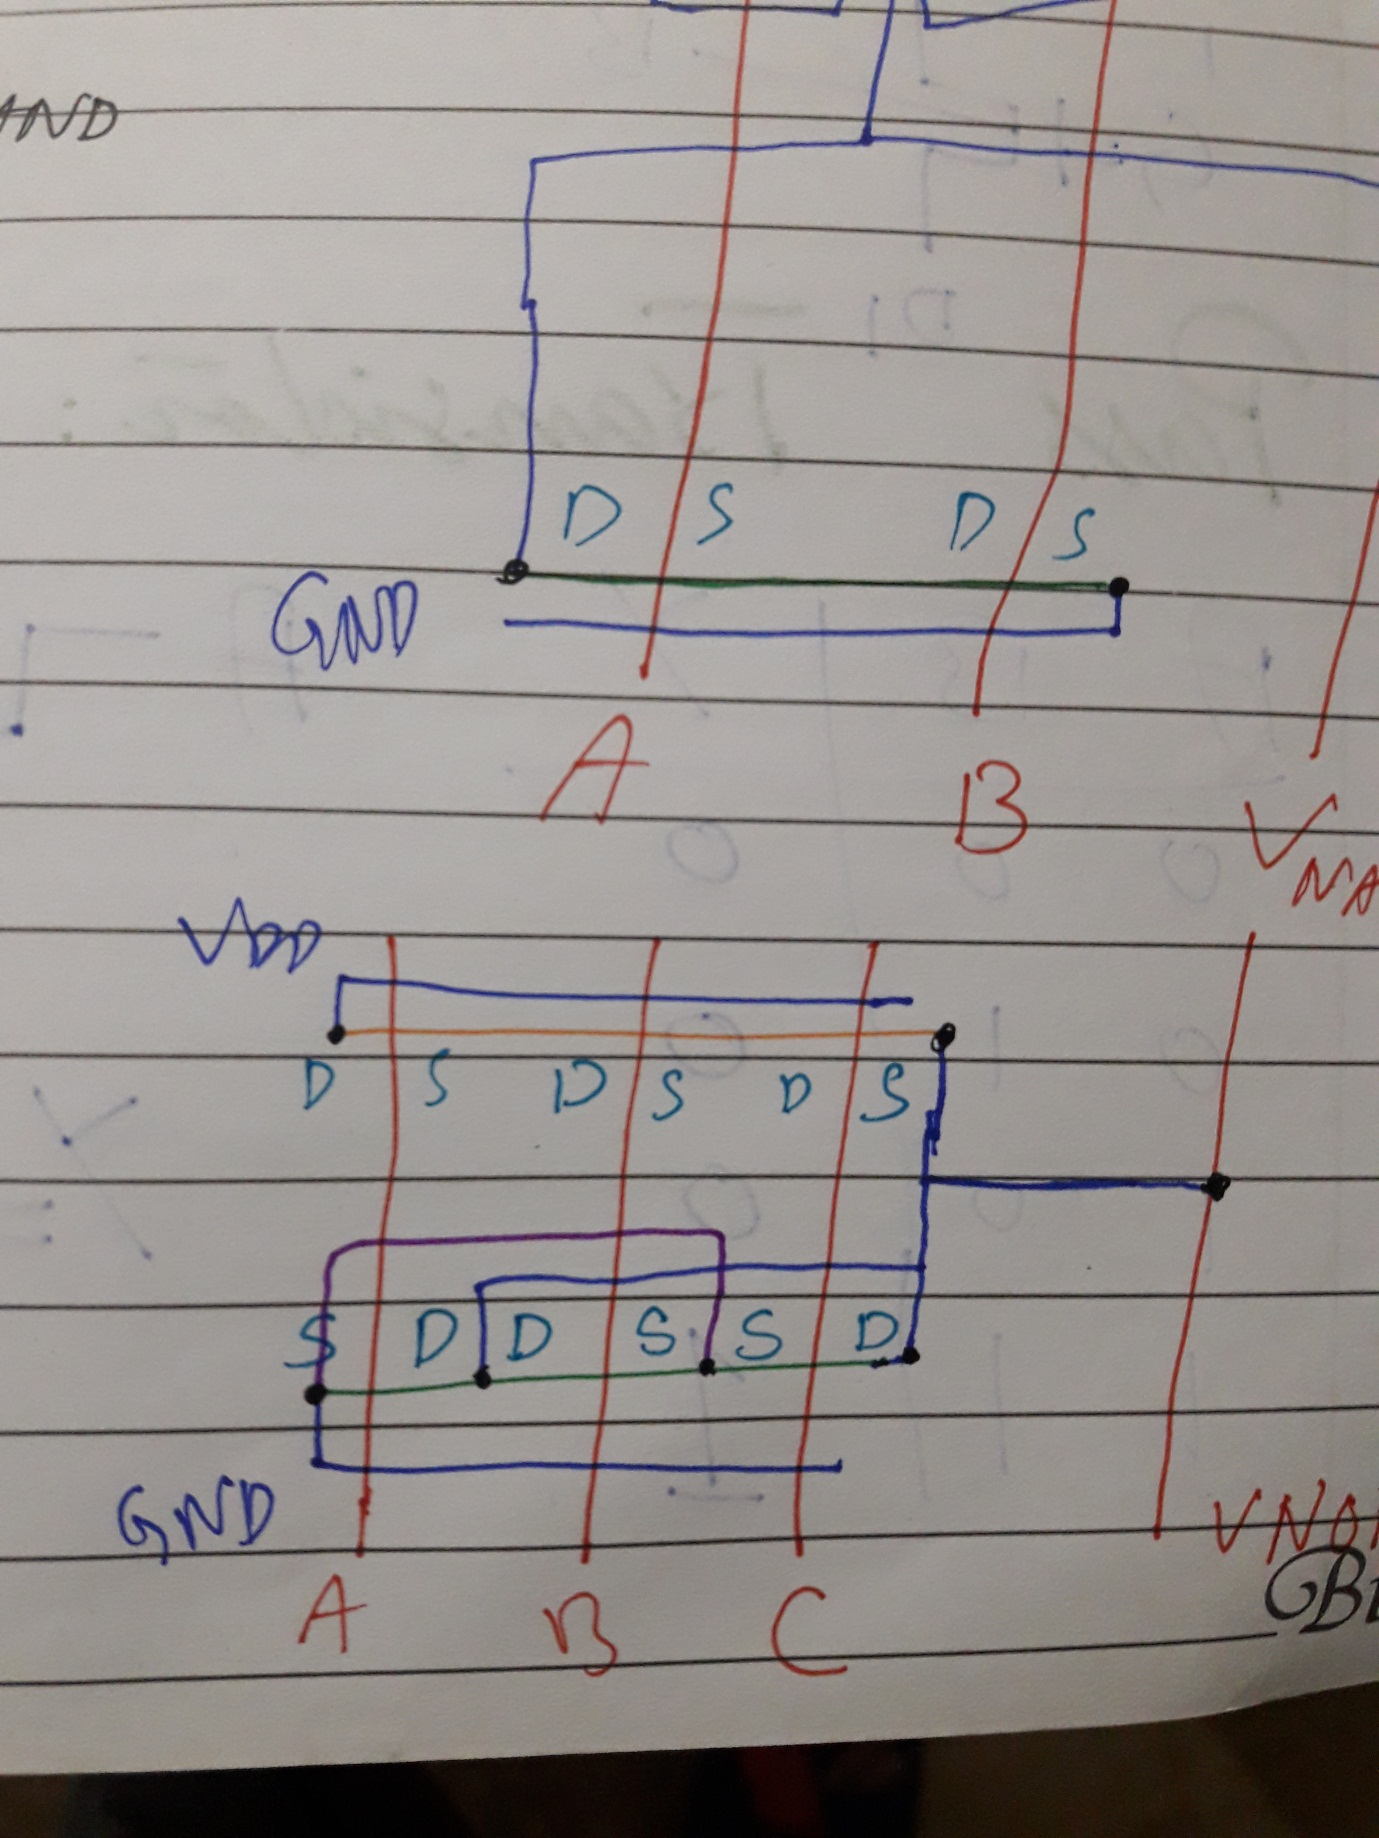 AND
D S D S
GND
A
B
VNA
VDD
D S D S D S
S D D S S D
GND
VNO
A B C